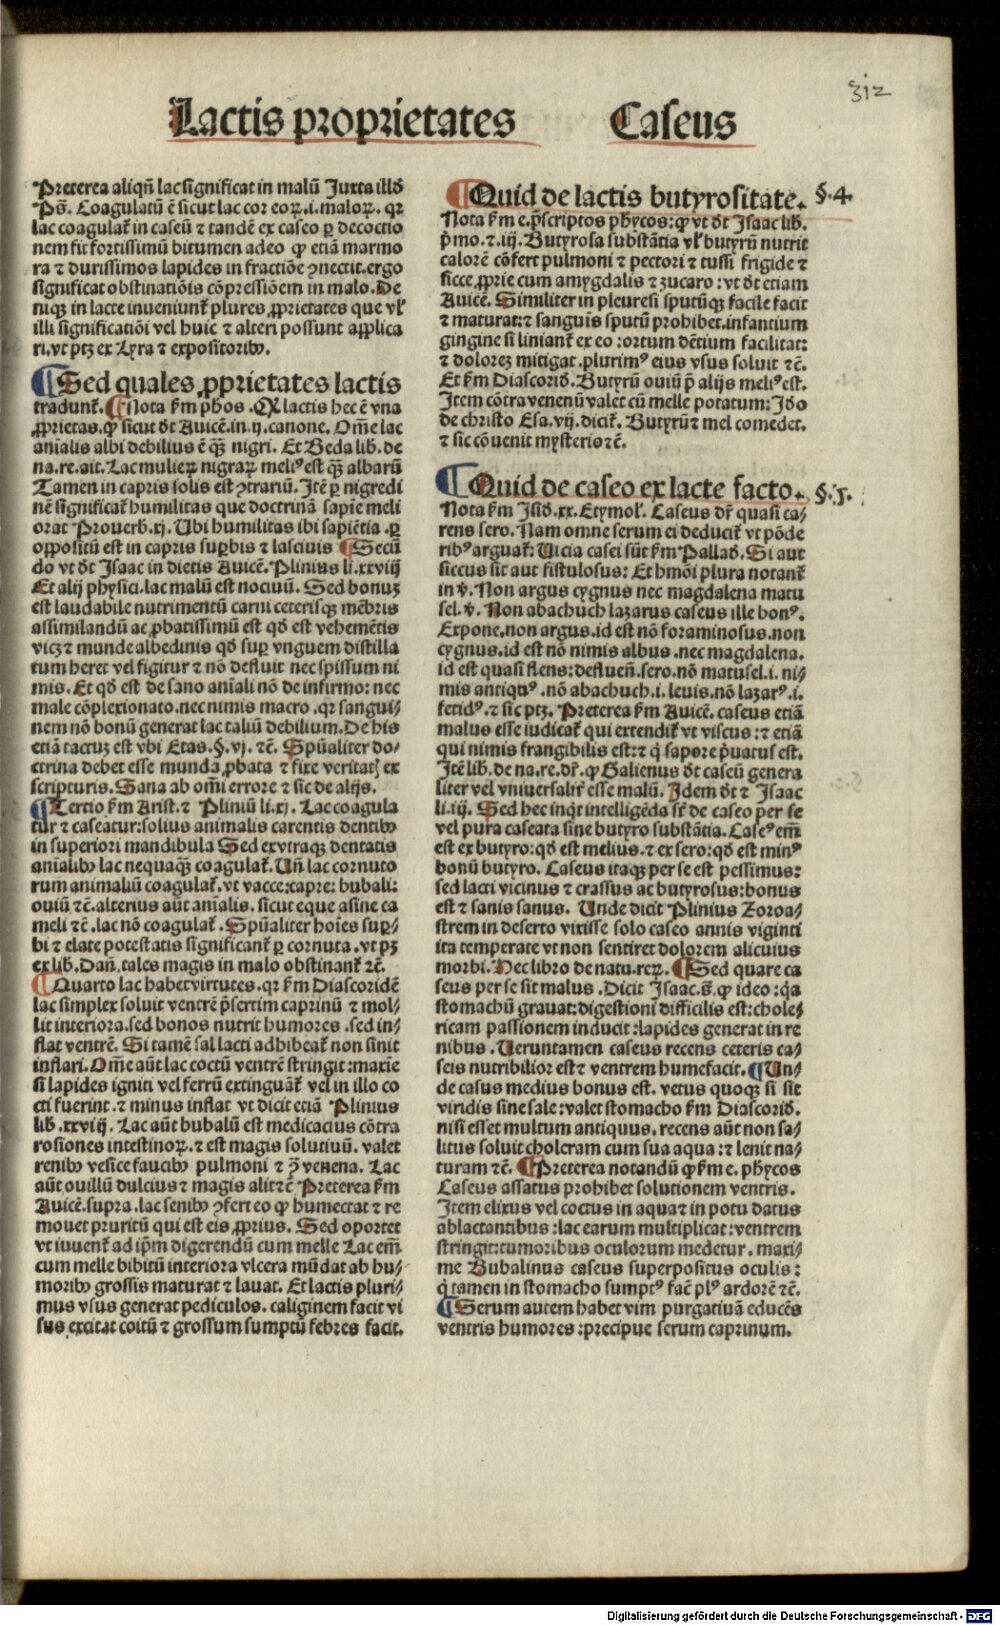 312
Lactis proprietates Caseus
Preterea aliqñ lac significat in malũ Juxta illđ
Pš. Coagulatũ ē sicut lac cor eoꝝ.i.maloꝝ. qꝛ
lac coagulat᷑ in caseũ ⁊ tandē ex caseo ꝑ decoctio
nem fit fortissimũ bitumen adeo ꝙ etiã marmo
ra ⁊ durissimos lapides in fractiõe ꝯnectit.ergo
significat obstinatiõis cõpressiõem in malo. De
niqꝫ in lacte inueniunt᷑ plures ꝓprietates que vl̓
illi significatiõi vel huic ⁊ alteri possunt applica
ri.vt ptꝫ ex Lyra ⁊ expositoribꝰ.
¶ Sed quales ꝓprietates lactis
tradunt᷑. ¶ Nota ẜm phos. Qꝛ lactis hec ē vna
ꝓprietas.ꝙ sicut dt Auicē.in.ij.canone. Om̄e lac
anialis albi debilius ē qꝫ nigri. Et Beda lib. de
na.re.ait. Lac mulieꝝ nigraꝝ meliꝰ est qꝫ albarũ
Tamen in capris solis est ꝯtrariũ. Itē ꝑ nigredi
nē significat᷑ humilitas que doctrinã sapie meli
orat Prouerb.xj. Ubi humilitas ibi sapiētia .ꝑ
oppositũ est in capris suꝑbis ⁊ lasciuis ¶ Secũ
do vt dt Isaac in dietis Auicē. Plinius li.xxviij
Et alij physici.lac malũ est nociuũ. Sed bonuꝫ
est laudabile nutrimentũ carni ceterisqꝫ mēbris
assimilandũ ac ꝓbatissimũ est qđ est vehemētis
vicꝫ ⁊ munde albedinis qđ suꝑ vnguem distilla
tum heret vel figitur ⁊ nõ defluit nec spissum ni
mis. Et qđ est de sano aniali nõ de infirmo: nec
male cõplexionato.nec nimis macro .qꝛ sangui⸗
nem nõ bonũ generat lac taliũ debilium. De his
etiã tactuꝫ est vbi Etas.§.vj. ⁊č. Spũaliter do⸗
ctrina debet esse munda ꝓbata ⁊ fixe veritatꝭ ex
scripturis. Sana ab om̄i errore ⁊ sic de alijs.
¶ Tertio ẜm Arist.⁊ Pliniũ li.xj. Lac coagula
tur ⁊ caseatur:solius animalis carentis dentibꝰ
in superiori mandibula Sed ex vtraqꝫ dentatis
anialibꝰ lac nequaqꝫ coagulat᷑. Uñ lac cornuto
rum animaliũ coagulat᷑.vt vacce:capre: bubali:
ouiũ ⁊č.alterius aũt anialis. sicut eque asine ca
meli ⁊č.lac nõ coagulat᷑. Spũaliter hoies suꝑ⸗
bi ⁊ elate potestatis significant᷑ ꝑ cornuta .vt pꝫ
ex lib. Dañ.tales magis in malo obstinant᷑ ⁊č.
¶ Quarto lac habet virtutes.qꝛ ẜm Diascoridē
lac simplex soluit ventrē p̄sertim caprinũ ⁊ mol⸗
lit interiora.sed bonos nutrit humores .sed in⸗
flat ventrē. Si tamē sal lacti adhibeat᷑ non sinit
inflari. Om̄e aũt lac coctũ ventrē stringit:maxie
si lapides igniti vel ferrũ extinguat᷑ vel in illo co
cti fuerint.⁊ minus inflat vt dicit etiã Plinius
lib.xxviij. Lac aũt bubalũ est medicacius cõtra
rosiones intestinoꝝ.⁊ est magis solutiuũ. valet
renibꝰ vesice faucibꝰ pulmoni ⁊ ꝯ̄ venena. Lac
aũt ouillũ dulcius ⁊ magis alit ⁊č Preterea ẜm
Auicē.supra.lac senibꝰ ꝯfert eo ꝙ humectat ⁊ re
mouet pruritũ qui est eis ꝓprius. Sed oportet
vt iuuent᷑ ad ip̄m digerendũ cum melle Lac em̄
cum melle bibitũ interiora vlcera mũdat ab hu⸗
moribꝰ grossis maturat ⁊ lauat. Et lactis pluri⸗
mus vsus generat pediculos. caliginem facit vi
sus.excitat coitũ ⁊ grossum sumptũ febres facit.
¶ Quid de lactis butyrositate. §.4.
Nota ẜm e.p̄scriptos phycos:ꝙ vt dt Isaac lib.
p̄mo.⁊.iij. Butyrosa substãtia vl̓ butyrũ nutrit
calorē cõfert pulmoni ⁊ pectori ⁊ tussi frigide ⁊
sicce.ꝓprie cum amygdalis ⁊ zucaro : vt dt etiam
Auicē. Similiter in pleuresi sputũqꝫ facile facit
⁊ maturat:⁊ sanguis sputũ prohibet.infantium
gingine si liniant᷑ ex eo :ortum dētium facilitat:
⁊ dolorez mitigat .plurimꝰ eius vsus soluit ⁊č.
Et ẜm Diascoriđ. Butyrũ ouiũ p̄ alijs meliꝰ est.
Item cõtra venenũ valet cũ melle potatum: Iđo
de christo Esa.vij.dicit᷑. Butyrũ ⁊ mel comedet.
⁊ sic cõuenit mysterio ⁊č.
¶ Quid de caseo ex lacte facto. §.5.
Nota ẜm Isiđ.xx.Etymol̓. Caseus dr̄ quasi ca⸗
rens sero. Nam omne serum ei deducit᷑ vt põde
ribꝰ arguat᷑: Uicia casei sũt ẜm Pallađ. Si aut
siccus sit aut fistulosus: Et hmõi plura notant᷑
in v̓. Non argus cygnus nec magdalena matu
sel.v̓. Non abachuch lazarus caseus ille bonꝰ.
Expone.non argus.id est nõ foraminosus.non
cygnus.id est nõ nimis albus .nec magdalena.
id est quasi flens:defluen̄.sero.nõ matusel.i. ni⸗
mis antiquꝰ .nõ abachuch.i. leuis.nõ lazarꝰ.i.
fetidꝰ.⁊ sic ptꝫ. Preterea ẜm Auicē. caseus etiã
malus esse iudicat᷑ qui extendit᷑ vt viscus:⁊ etiã
qui nimis frangibilis est:⁊ q̇ sapore p̄uatus est.
Itē lib. de na.re.dr̄.ꝙ Galienus dt caseũ genera
liter vel vniuersalit᷑ esse malũ. Idem dt ⁊ Isaac
li.iij. Sed hec inqt intelligēda sꝫ de caseo per se
vel pura caseata sine butyro substãtia. Caseꝰ em̄
est ex butyro:qđ est melius.⁊ ex sero:qđ est minꝰ
bonũ butyro. Caseus itaqꝫ per se est pessimus:
sed lacti vicinus ⁊ crassus ac butyrosus:bonus
est ⁊ sanis sanus. Unde dicit Plinius Zoroa⸗
strem in deserto vixisse solo caseo annis viginti
ita temperate vt non sentiret dolorem alicuius
morbi. Nec libro de natu.reꝝ. ¶ Sed quare ca
seus per se sit malus . Dicit Isaac.š.ꝙ ideo :qꝛ
stomachũ grauat:digestioni difficilis est:chole⸗
ricam passionem inducit :lapides generat in re
nibus . Ueruntamen caseus recens ceteris ca⸗
seis nutribilior est ⁊ ventrem humefacit. ¶ Un⸗
de casus medius bonus est. vetus quoqꝫ si sit
viridis sine sale :valet stomacho ẜm Diascoriđ.
nisi esset multum antiquus. recens aũt non sa⸗
litus soluit choleram cum sua aqua :⁊ lenit na⸗
turam ⁊č. ¶ Preterea notandũ ꝙ ẜm e. phycos
Caseus assatus prohibet solutionem ventris.
Item elixus vel coctus in aqua ⁊ in potu datus
ablactantibus :lac earum multiplicat :ventrem
stringit:tumoribus oculorum medetur. maxi⸗
me Bubalinus caseus superpositus oculis :
q̇ tamen in stomacho sumptꝰ fac̄ plꝰ ardorē ⁊č.
¶ Serum autem habet vim purgatiuã educēs
ventris humores :precipue serum caprinum.
Digitalisierung gefördert durch die Deutsche Forschungsgemeinschaft - DFG